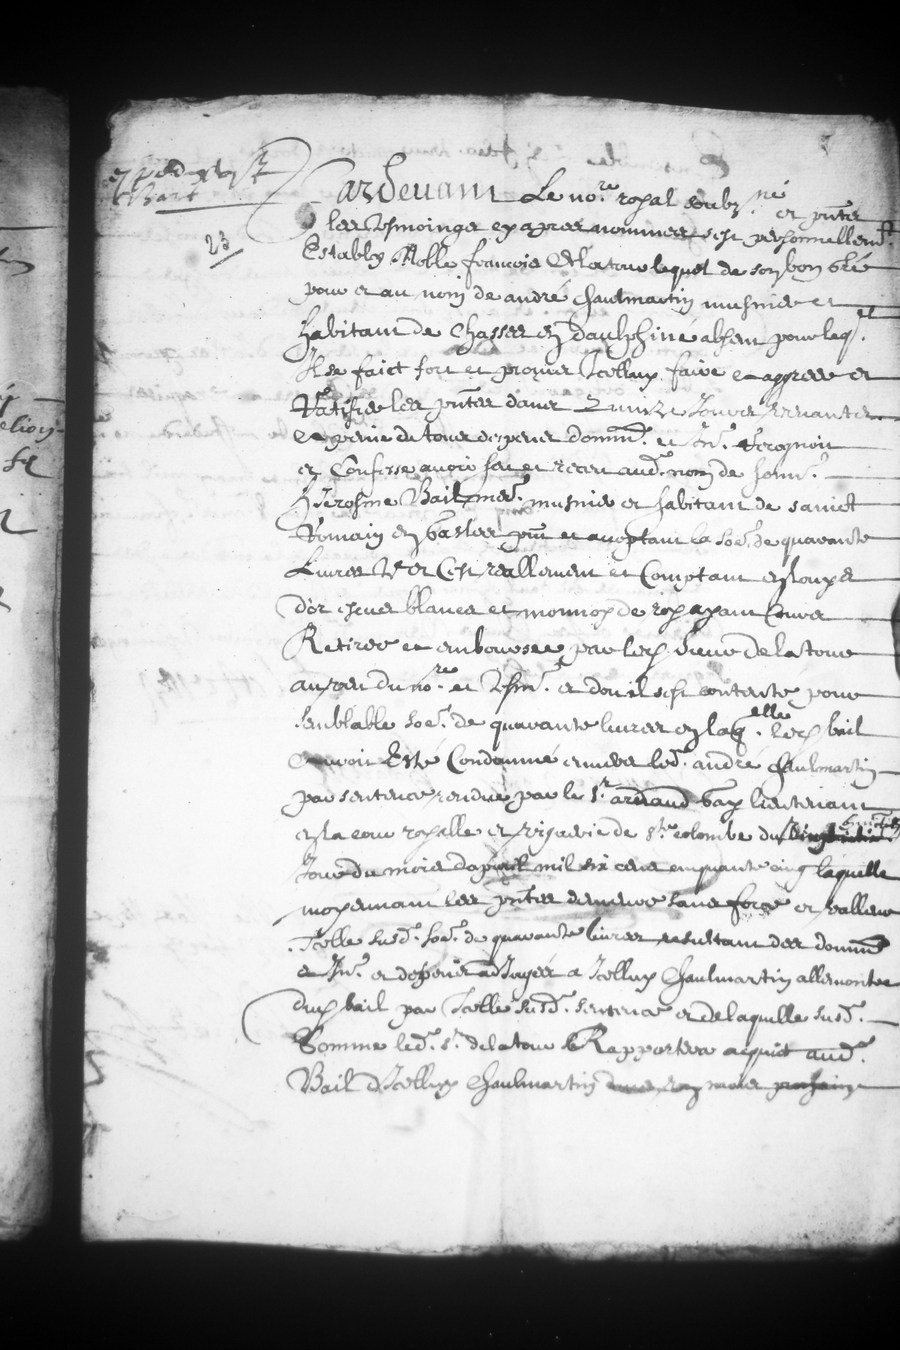 Expedie
23
Pardevant Le no.re royal soubz.né et pntz
les tesmoingz cy apres nommez s'est personnellemt
Estably Noble françois delatour lequel de son bon gré
pour et au nom de andré chaulmartin musnier et
habitant de Chasses en daulphiné absent pour leql
Il se faict fort et promect Icelluy faire aggreer et
Rattifier les pntes dans quinze Jours venantz
a peine de tous despens domm. et Int. Recognoit
et Confesse avoir heu et receu aud. nom de honn.
Hierosme Bail me. musnier et habitant de sainct
Romain en gastier pnt et acceptant la so.e de quarante
Livres tz et Cest reallement et Comptant en louys
d'or escus blancs et monnoye de roy ayant Cours
Retiree et emboursee par led. sieur Delatour
au veu du no.re et tesm. et dont il s'est contenté pour
semblable so.e de quarante livres en laq.elle led. bail
avoit Esté Condamné envers led. andré chaulmartin
par sentence rendue par le s.r arnaud bay lieutenant
en la cour royalle et viguerie de s.te colombe du
Jour du mois d'apvril mil six cens cinquante cinq laquelle
moyenant les pntes demeure sans force et valleur
Icelle susd. so.e de quarante livres resultant des domm
et Int. et despens adjugés a Icelluy chaulmartin allencontre
dud. bail par Icelle susd. sentence et de laquelle susd.
Somme led. s.r delatour Rapportera acquit aud.
Bail d'Icelluy chaulmartin